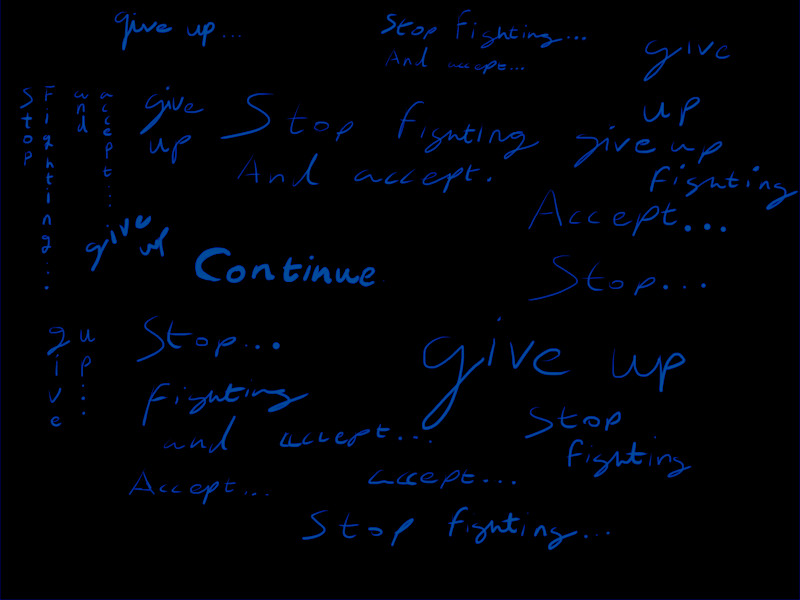 give up...
Stop Fighting...
And accept...
give
up
Stop
Fighting...
and
accept...
give
up
Stop Fighting
And accept.
give up
Fighting
Accept...
give up
Continue
Stop...
give
up...
Stop...
Fighting
and accept...
Accept...
give up
Stop
Fighting
accept...
Stop Fighting...